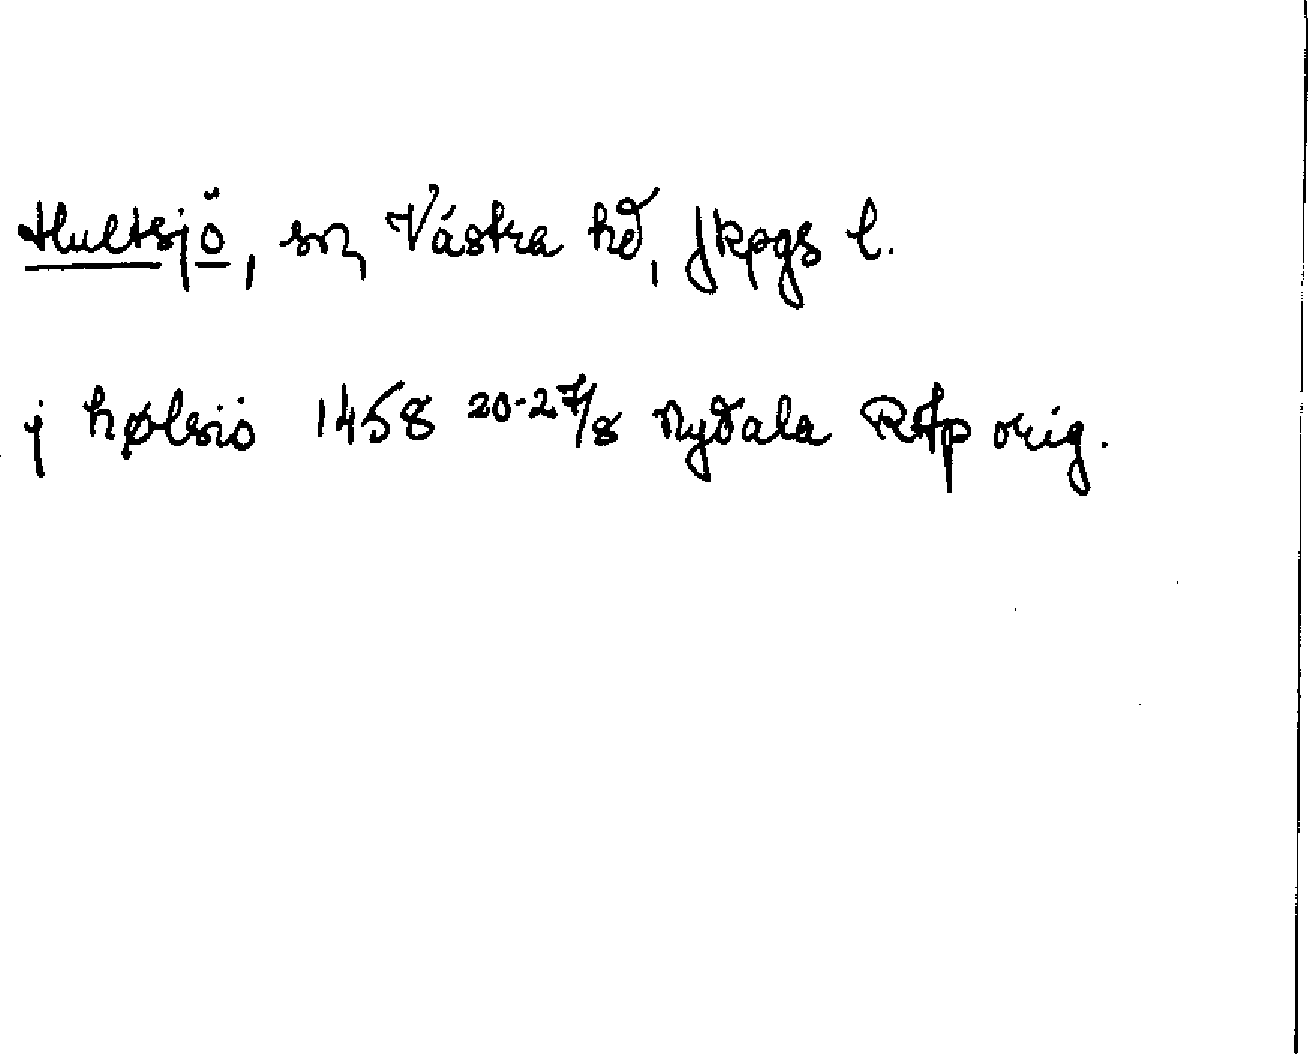 Hultsjö, sn, Västra hd, Jkpgs l.
j hølsiö 1458 20-27/8 Nydala RAp orig.